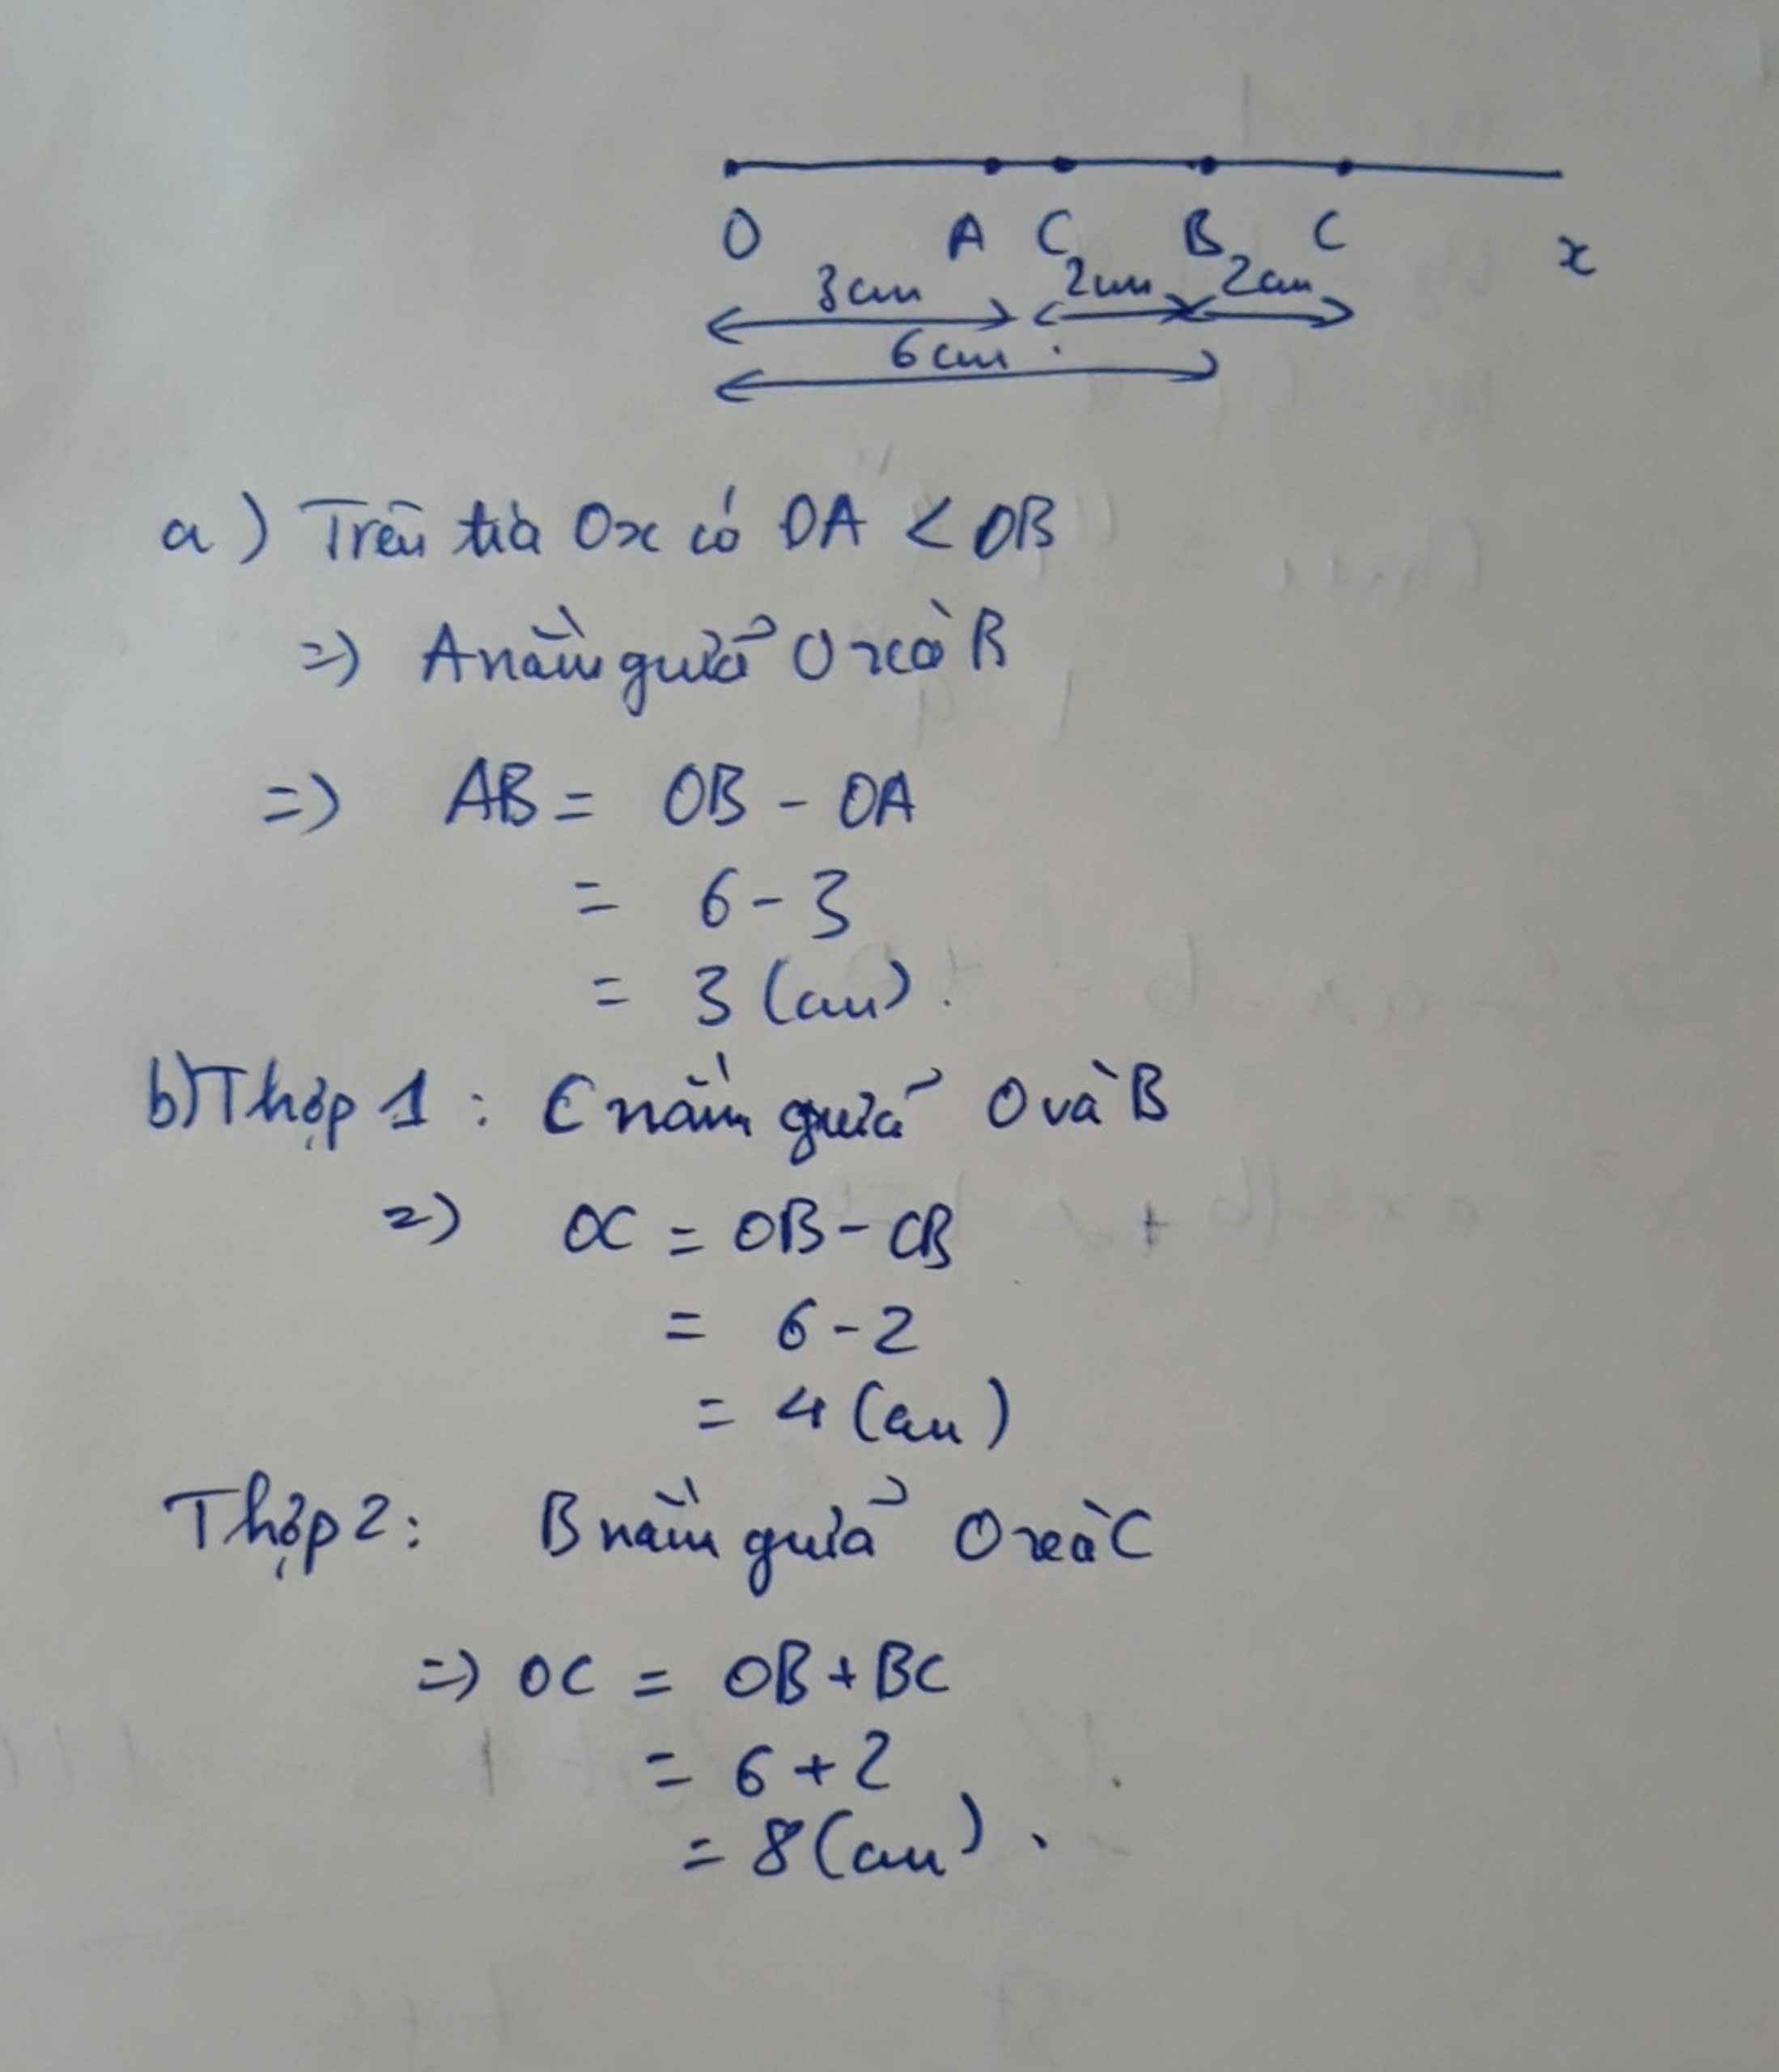 O A C B C x
3cm 2cm 2cm
6cm
a) Trên tia Ox có OA < OB
=> A nằm giữa O và B
=> AB = OB - OA
= 6 - 3
= 3 (cm).
b) Thợp 1 : C nằm giữa O và B
=> OC = OB - CB
= 6 - 2
= 4 (cm)
Thợp 2 : B nằm giữa O và C
=> OC = OB + BC
= 6 + 2
= 8 (cm).